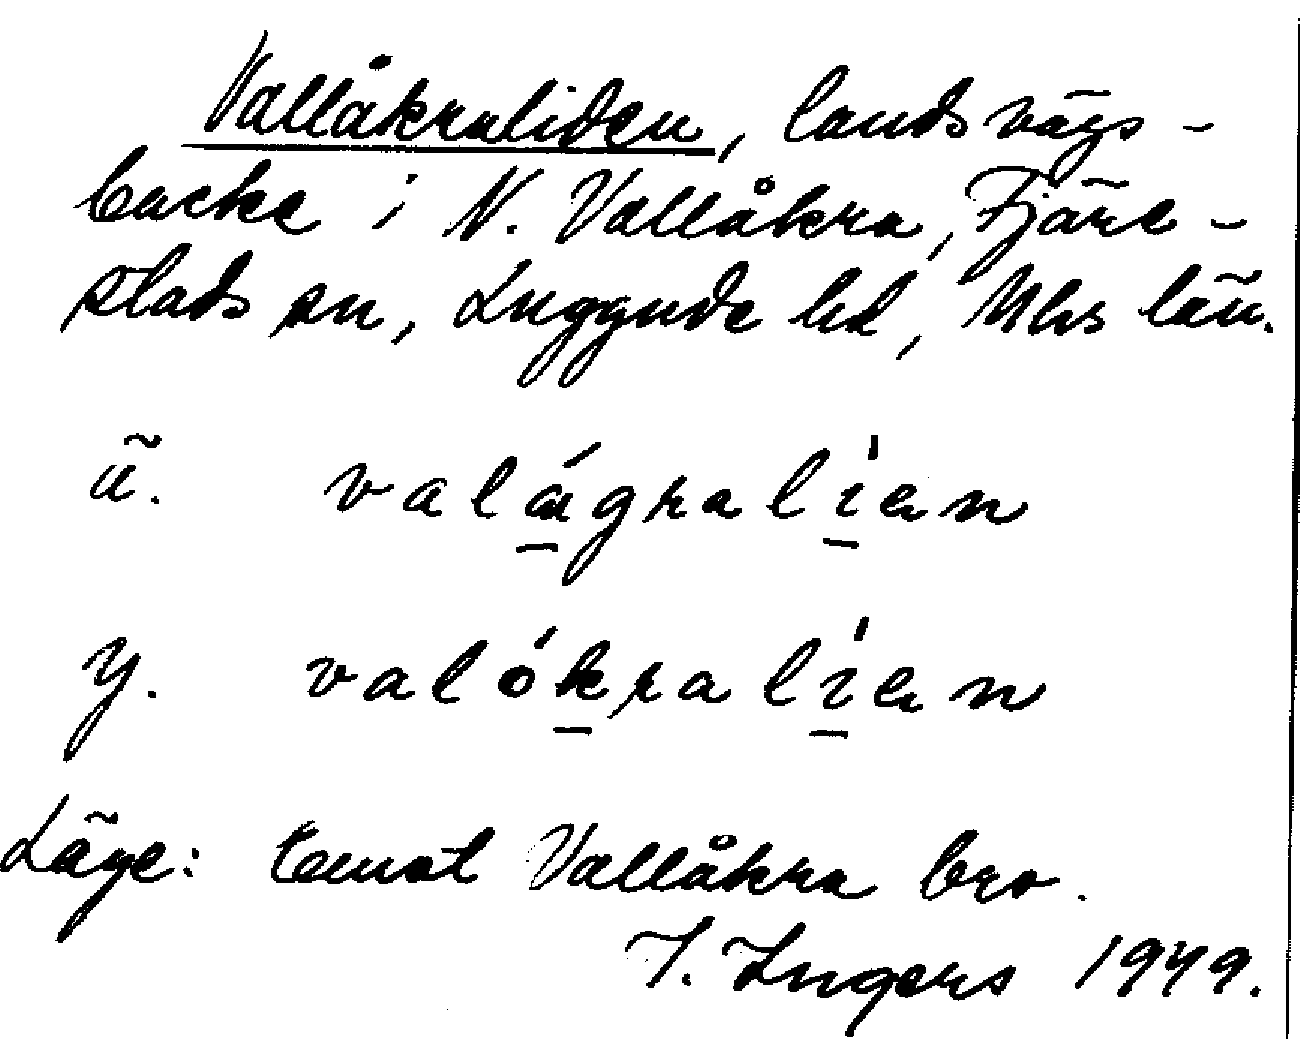 Vallåkraliden, landsvägs-
backe i N. Vallåkra, Fjäre-
stads sn, Luggude hd, Mhs län.
ä. valágralien
y. valókralien
Läge: Emot Vallåkra bro.
I. Ingers 1949.